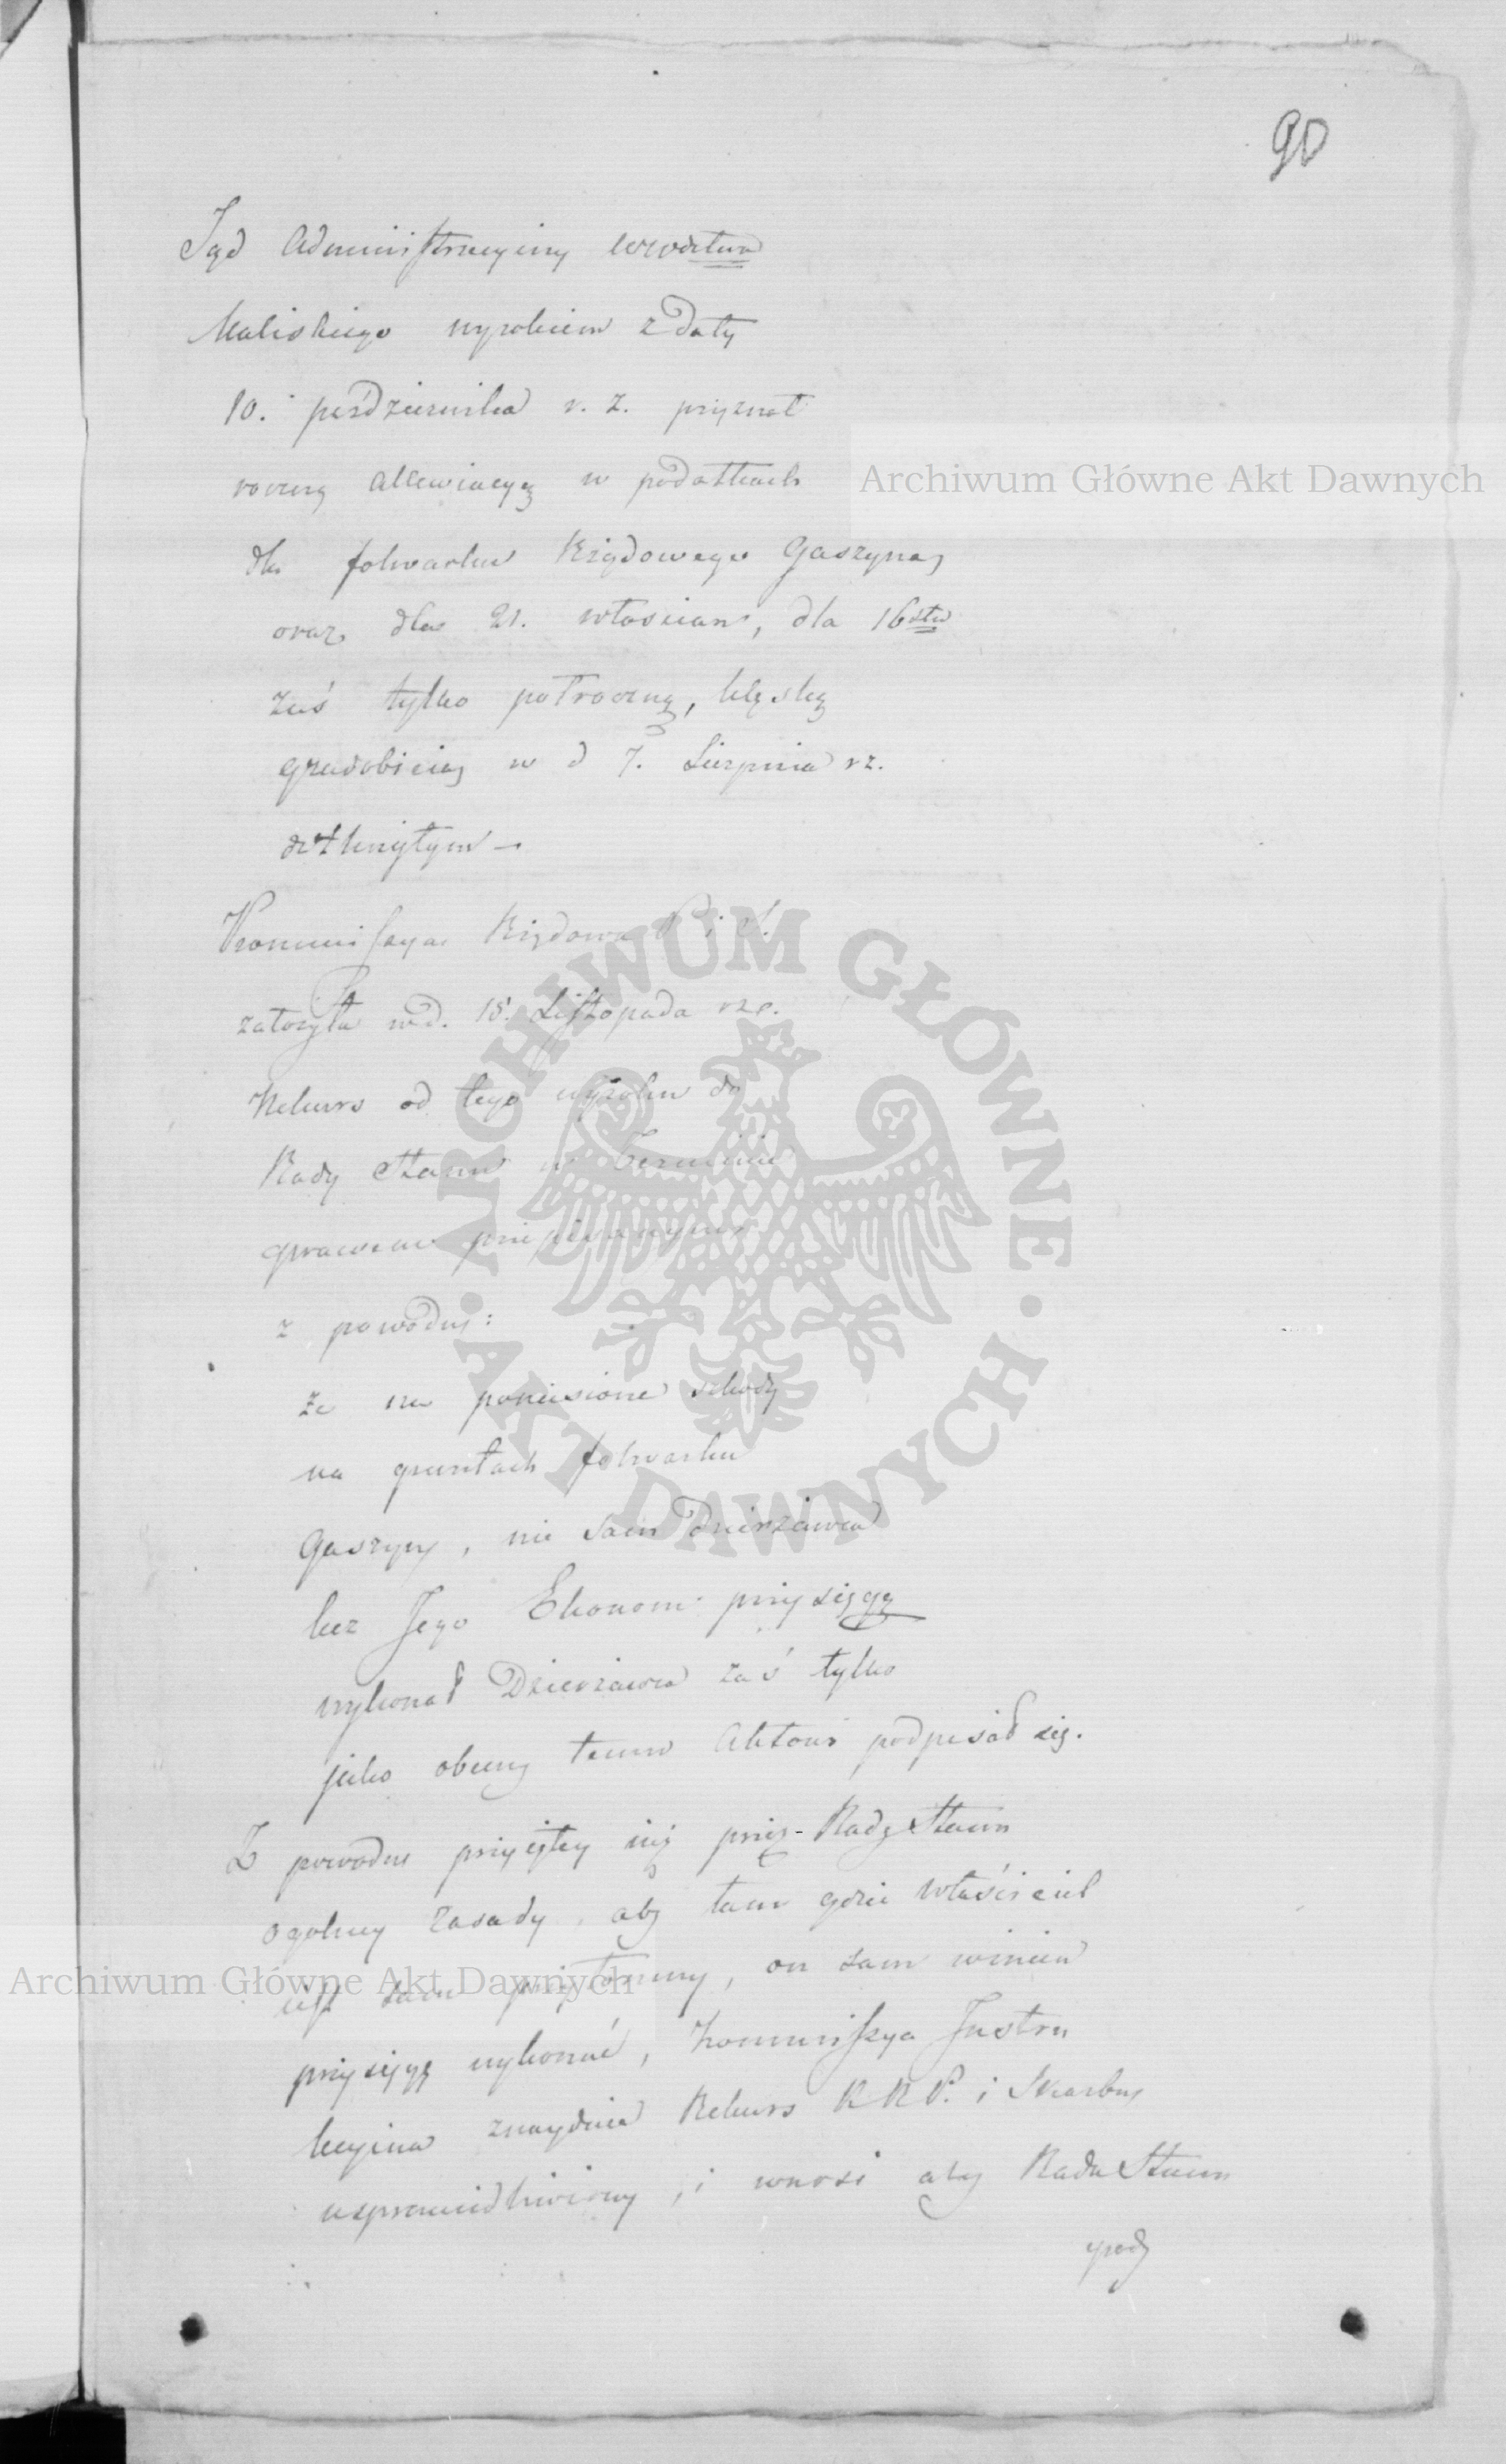 90
Sąd Administracyiny Wwdztwa
Kaliskiego wyrokiem z daty
10. października r. z. przyznał
roczną allewiacyą w podatkach
dla folwarku Rządowego Gaszyna,
oraz dla 21. włościan, dla 16stu
zaś tylko półroczną, klęską
gradobicia, w d 7. Sierpnia rz.
dotkniętym —
Kommissya Rządowa P. i S.
założyła w d. 15. Listopada rze.
Rekurs od tego wyroku do
Rady Stanu w Terminie
prawem przepisanym
z powodu:
że na poniesione szkody
na gruntach folwarku
Gaszyny, nie sam Dzierżawca
lecz Jego Ekonom przysięgę
wykonał Dzierżawca zaś tylko
jako obecny temu Aktowi podpisał się.
Z powodu przyiętey iuż przez Radę Stanu
ogólney zasady, aby tam gdzie Właściciel
iest sam przytomny, on sam winien
przysięgę wykonać, Kommissya Instru
kcyina znayduie Rekurs K R P. i Skarbu
usprawiedliwiony, i wnosi aby Rada Stanu
Archiwum Główne Akt Dawnych
ARCHIWUM GŁÓWNE AKT DAWNYCH
Archiwum Główne Akt Dawnych